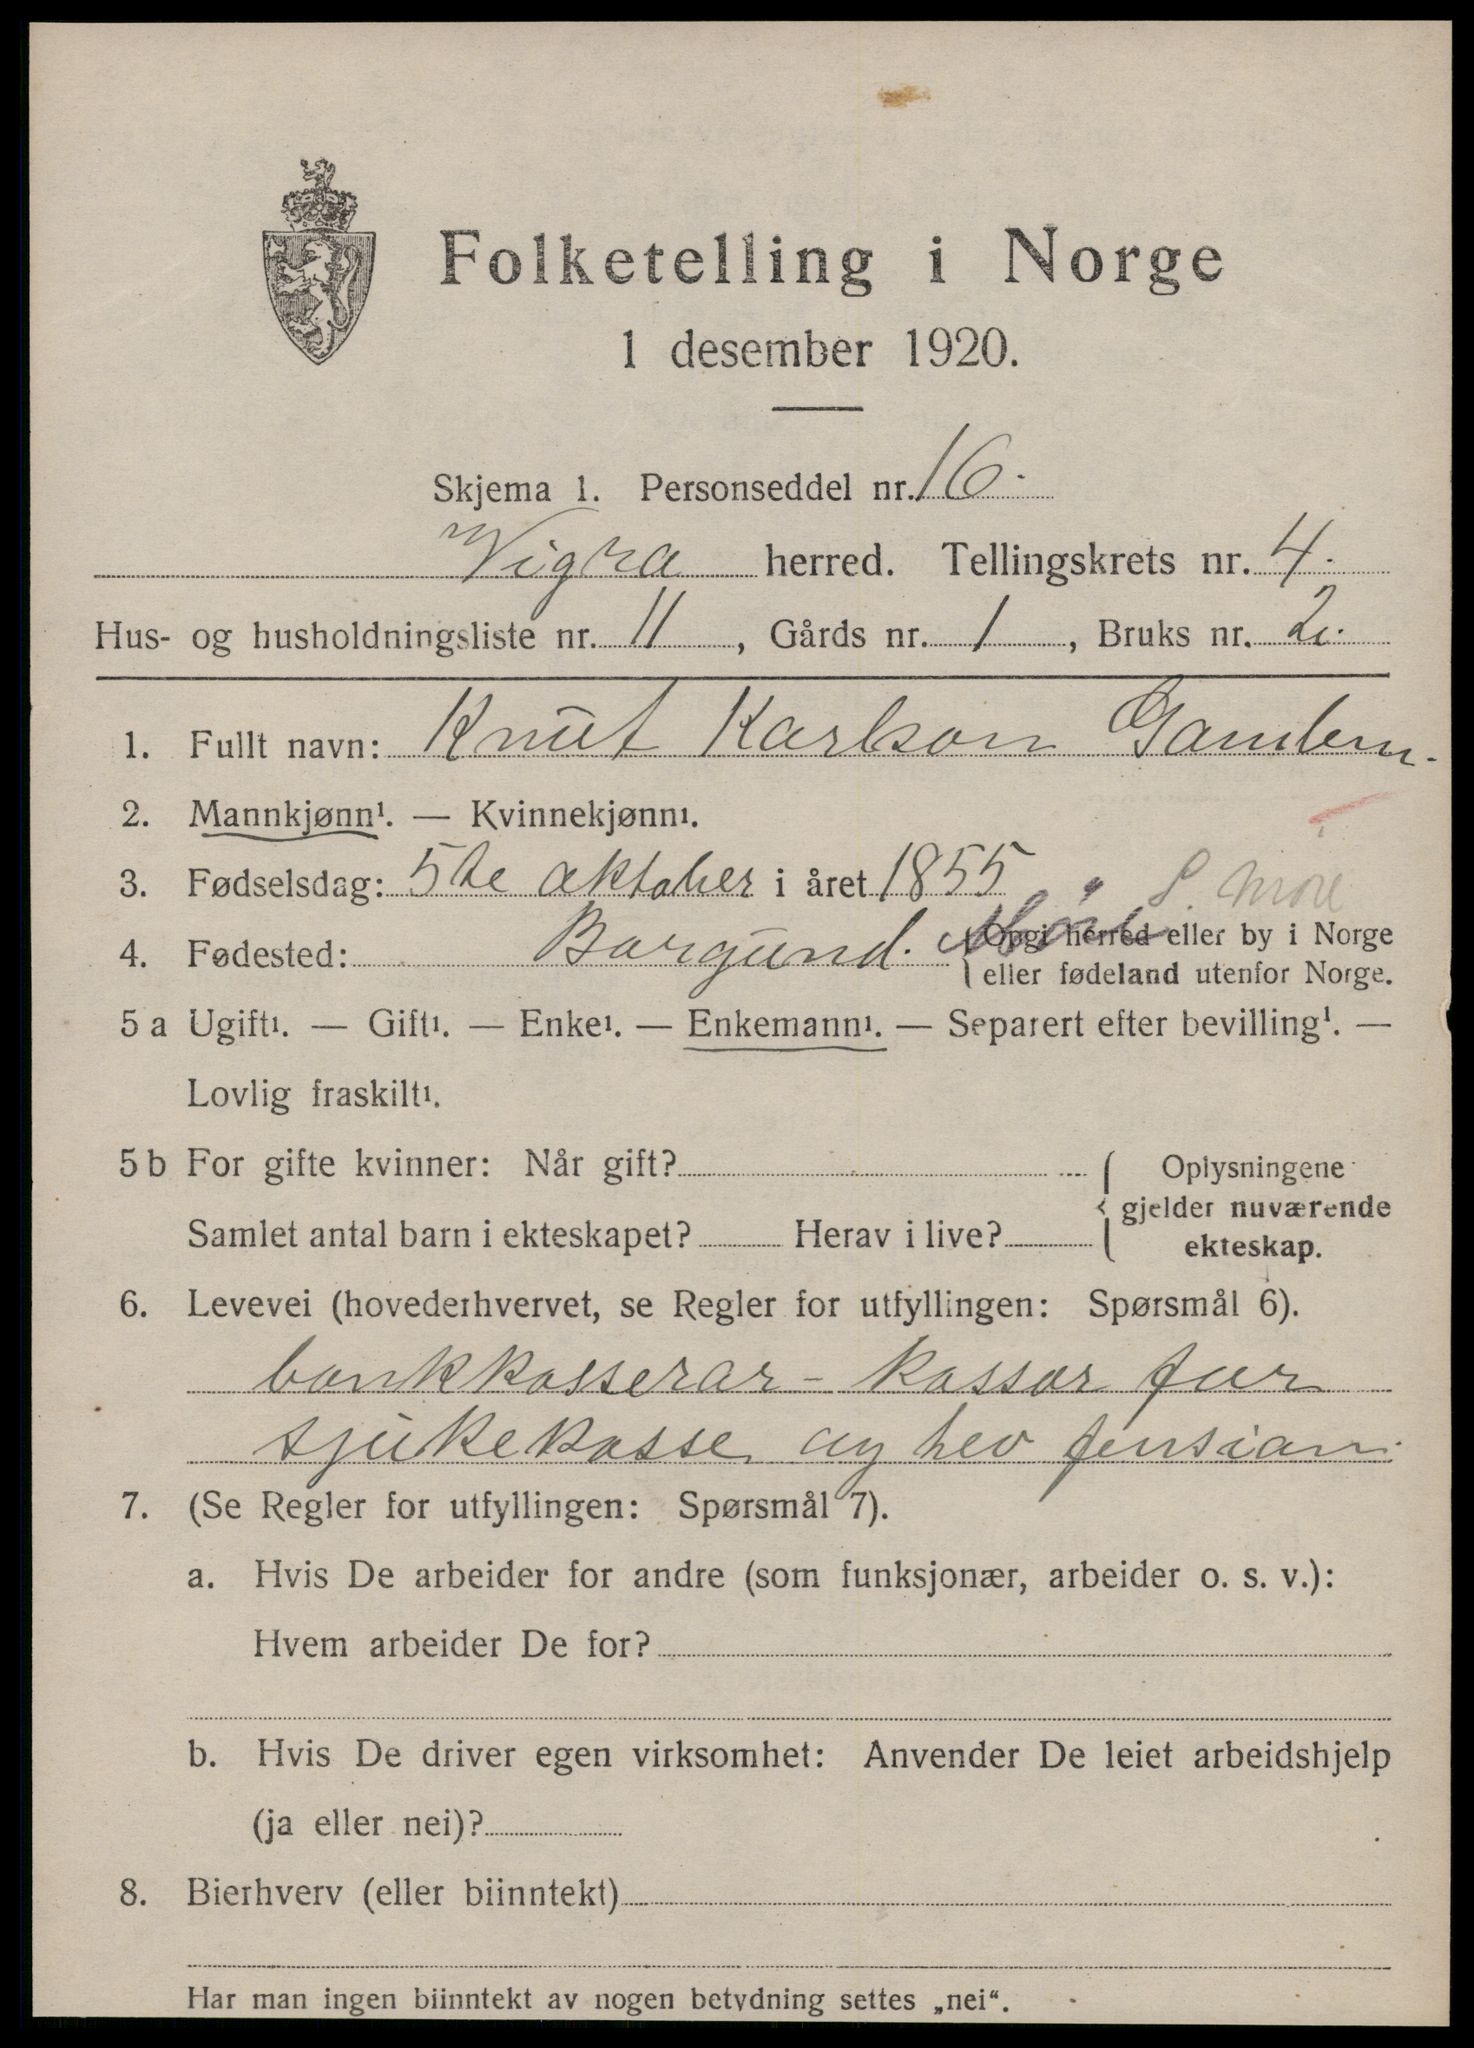 Folketelling i Norge
1 desember 1920.
Skjema 1. Personseddel nr. 16.
Vigra herred. Tellingskrets nr. 4.
Hus- og husholdningsliste nr. 11, Gårds nr. 1, Bruks nr. 2.
1. Fullt navn: Knut Karlson Gamlem.
2. Mannkjønn¹. — Kvinnekjønn¹.
3. Fødselsdag: 5te oktober i året 1855
S. Møre
4. Fødested: Borgund. Møre {Opgi herred eller by i Norge
eller fødeland utenfor Norge.
5 a Ugift¹. — Gift¹. — Enke¹. — Enkemann¹. — Separert efter bevilling¹. —
Lovlig fraskilt¹.
5 b For gifte kvinner: Når gift? { Oplysningene
gjelder nuværende
Samlet antal barn i ekteskapet? Herav i live? ekteskap.
6. Levevei (hovederhvervet, se Regler for utfyllingen: Spørsmål 6).
bankkasserar - kassar for
sjukekasse og hev pensian.
7. (Se Regler for utfyllingen: Spørsmål 7).
a. Hvis De arbeider for andre (som funksjonær, arbeider o. s. v.):
Hvem arbeider De for?
b. Hvis De driver egen virksomhet: Anvender De leiet arbeidshjelp
(ja eller nei)?
8. Bierhverv (eller biinntekt)
Har man ingen biinntekt av nogen betydning settes „nei“.